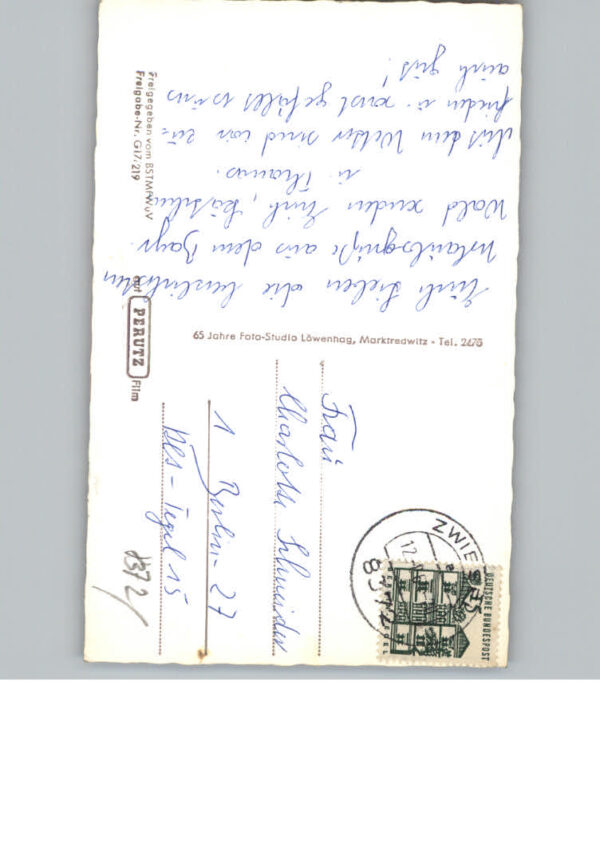 Euch Lieben die herzlichsten
Urlaubsgrüße aus dem Bayr.
Wald senden Euch,
u. Thomas.
Mit dem Wetter sind wir zu-
frieden u. sonst gefällts uns
auch gut!
Freigegeben vom BSTMFWuV
Freigabe-Nr. G17/219
auf PERUTZ Film
65 Jahre Foto-Studio Löwenhag, Marktredwitz - Tel. 2675
Frau
Charlotte Schneider
1 Berlin-27
Als-Tegel 15
ZWIE
8372
DEUTSCHE BUNDESPOST
8372